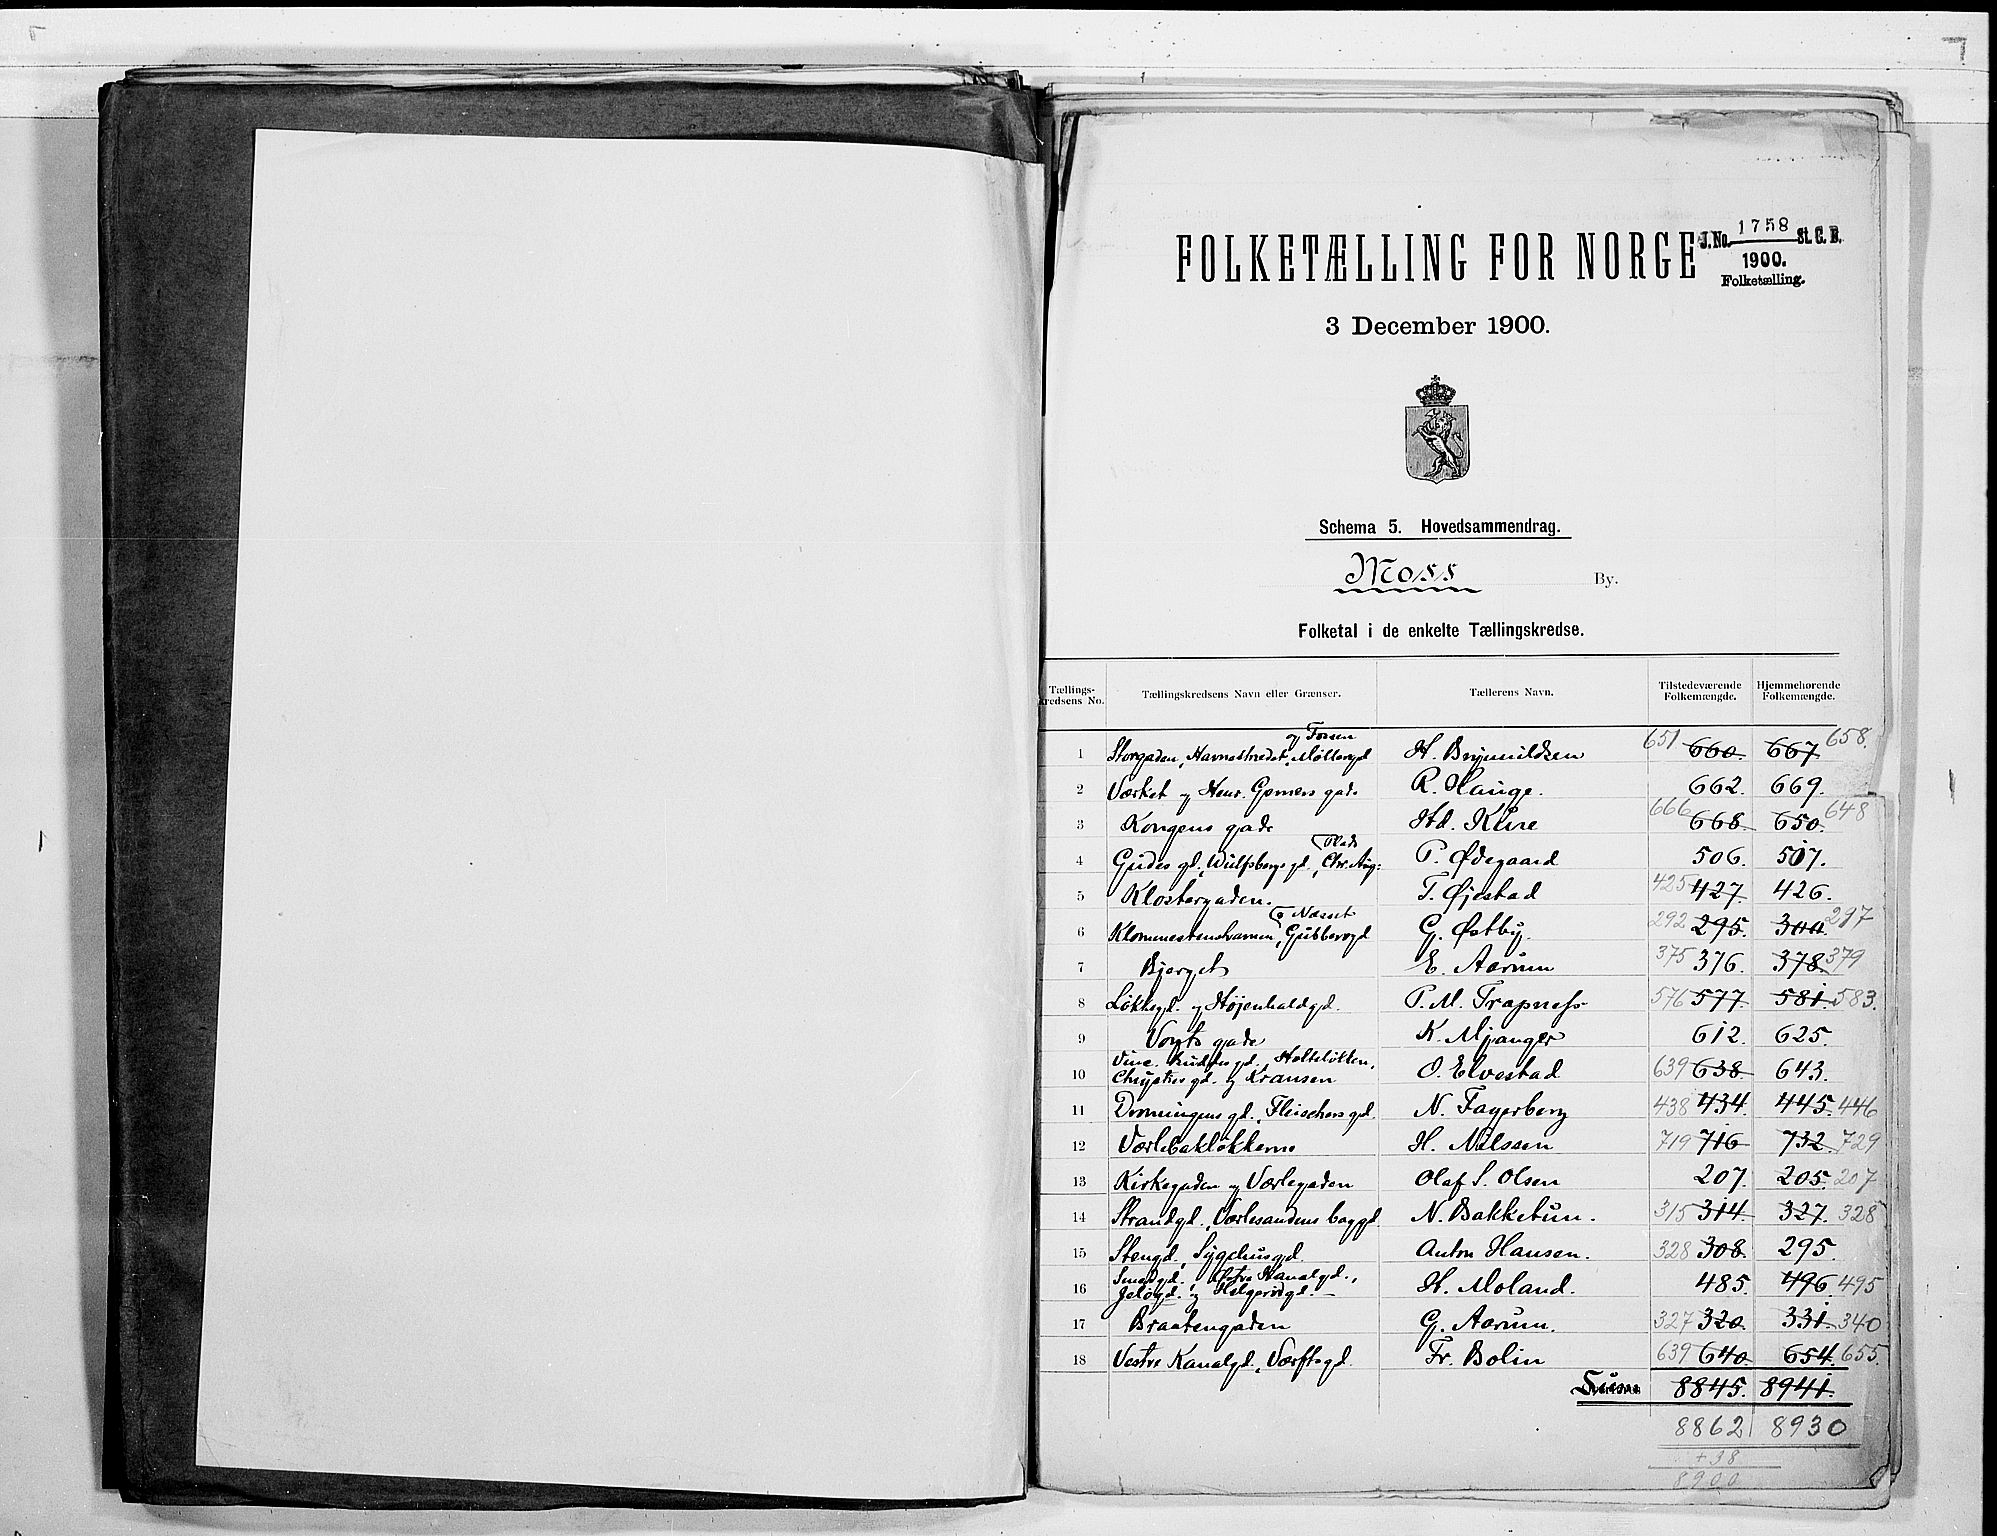 FOLKETÆLLING FOR NORGE
J.No. 1758 St. C. B.
1900.
Folketælling.
3 December 1900.
Schema 5. Hovedsammendrag.
Moss By.
Folketal i de enkelte Tællingskredse.
Tællings-kredsens No. Tællingskredsens Navn eller Grænser. Tællerens Navn. Tilstedeværende Folkemængde. Hjemmehørende Folkemængde.
og Fossen
1 Storgaden, Havnestrædet, Møllergd H. Brynildsen 651 660. 667 658.
2 Værket og Henr. Gerners gade R. Hauge. 662. 669.
3 Kongens gade Hd. Kure 666 668. 650. 648
Plads
4 Gudes gd., Wulfsbergs gd., Chr. Aug: P. Ødegaard 506. 507.
5 Klostergaden. T. Øjestad 425 427. 426.
og Næsset
6 Klommestensvamen, Gubbergd G. Østby. 292 295. 300. 297
7 Bjerget E. Aarum 375 376. 378. 379
8 Løkkegd. og Højenhaldgd. P. M. Trapness 576 577. 581. 583.
9 Vogts gade K. Mjanger 612. 625.
10 Vinc. Buddes gd., Holteløkken, Chrysties gd. og Kransen O. Elvestad 639 638. 643.
11 Dronningens gd. Fleischers gd. N. Fagerberg 438 434. 445. 446
12 Værlebakløkkerne H. Nilssen 719 716 732. 729
13 Kirkegaden og Værlegaden Olaf S. Olsen 207. 205. 207
14 Strandgd., Værlesandens baggd N. Bakketun. 315 314. 327. 328
15 Stengd., Sygehusgd Anton Hansen. 328 308. 295.
16 Smedgd., Østre Kanalgd., Jeløgd. og Helgerødgd. H. Moland. 485. 496. 495
17 Braatengaden G. Aarum. 327 320. 331. 340
18 Vestre Kanalgd., Værftsgd. Fr. Bolin 639 640. 654. 655.
Sum 8845. 8941.
8862 8930
+38
8900